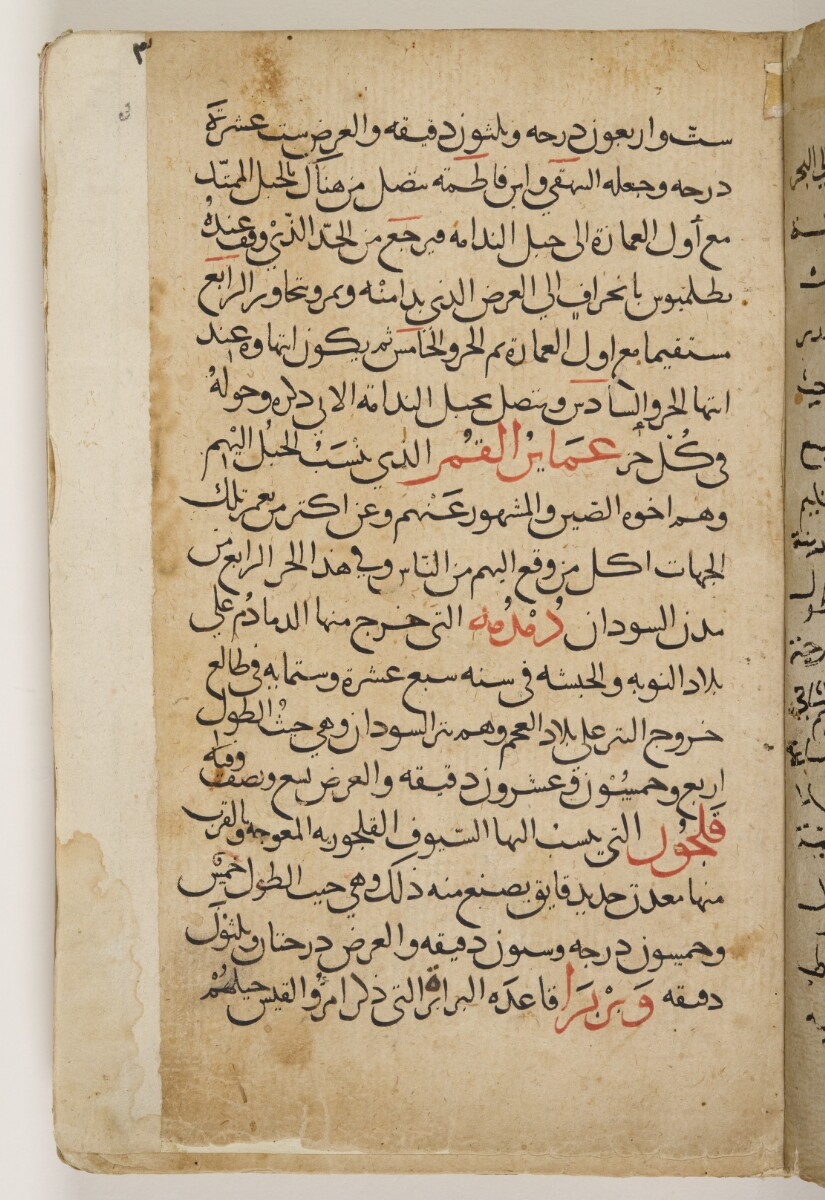 ٣
ستّ واربعون درجه وثلثون دقيقه والعرض ست عشرة
درجه وجعله البيهقي وابن فاطمة متصل من هناك بالجبل الممتد
مع أول العمارة الى جبل الندامه فيرجع من الحدّ الذي وقف عنده
بطلميوس بانحراف الي العرض الذي بدا منه ويمر ويجاور الرابع
مستقيما مع اول العمارة ثم الجزو الخامس ثم يكون انتهاوه عند
انتها الجزو السادس ويتصل بجبل الندامة الاتي ذكره وحوله
في كل جز عماير القمر الذي ينسب الجبل اليهم
وهم اخوه الصين والمشهور عنهم وعن اكثر من يعمر تلك
الجهات اكل من وقع اليهم من الناس وفي هذا الجز الرابع من
مدن السودان دمدمه التي خرج منها الدمادم علي
بلاد النوبه والحبشه في سنه سبع عشرة وستمايه في طالع
خروج التتر على بلاد العجم وهم تتر السودان وهي حيث الطول
اربع وخمسون وعشرون دقيقه والعرض تسع ونصف وفيه
قلجور التي ينسب اليها السيوف القلجوريه المعوجه وبالقرب
منها معدن حديد فايق يصنع منه ذلك وهي حيث الطول خمس
وخمسون درجه وستون دقيقه والعرض درجتان وثلثون
دقيقه وبربرا قاعدة البرابرة التي ذكر امرؤ القيس خيلهم